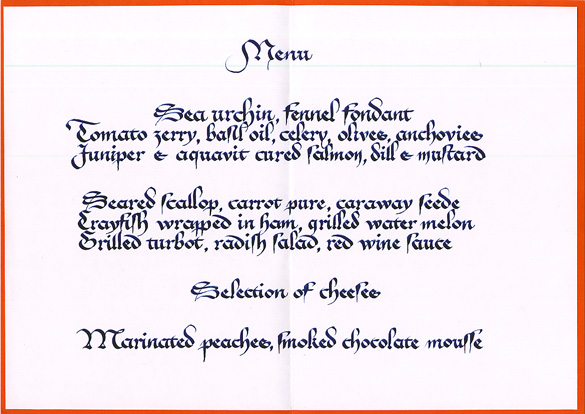 Menu
Sea urchin, fennel fondant
Tomato zerry, basil oil, celery, olives, anchovies
Juniper & aquavit cured salmon, dill & mustard
Seared scallop, carrot pure, caraway seede
Crayfish wrapped in ham, grilled water melon
Grilled turbot, radish salad, red wine sauce
Selection of cheeses
Marinated peaches, smoked chocolate mousse